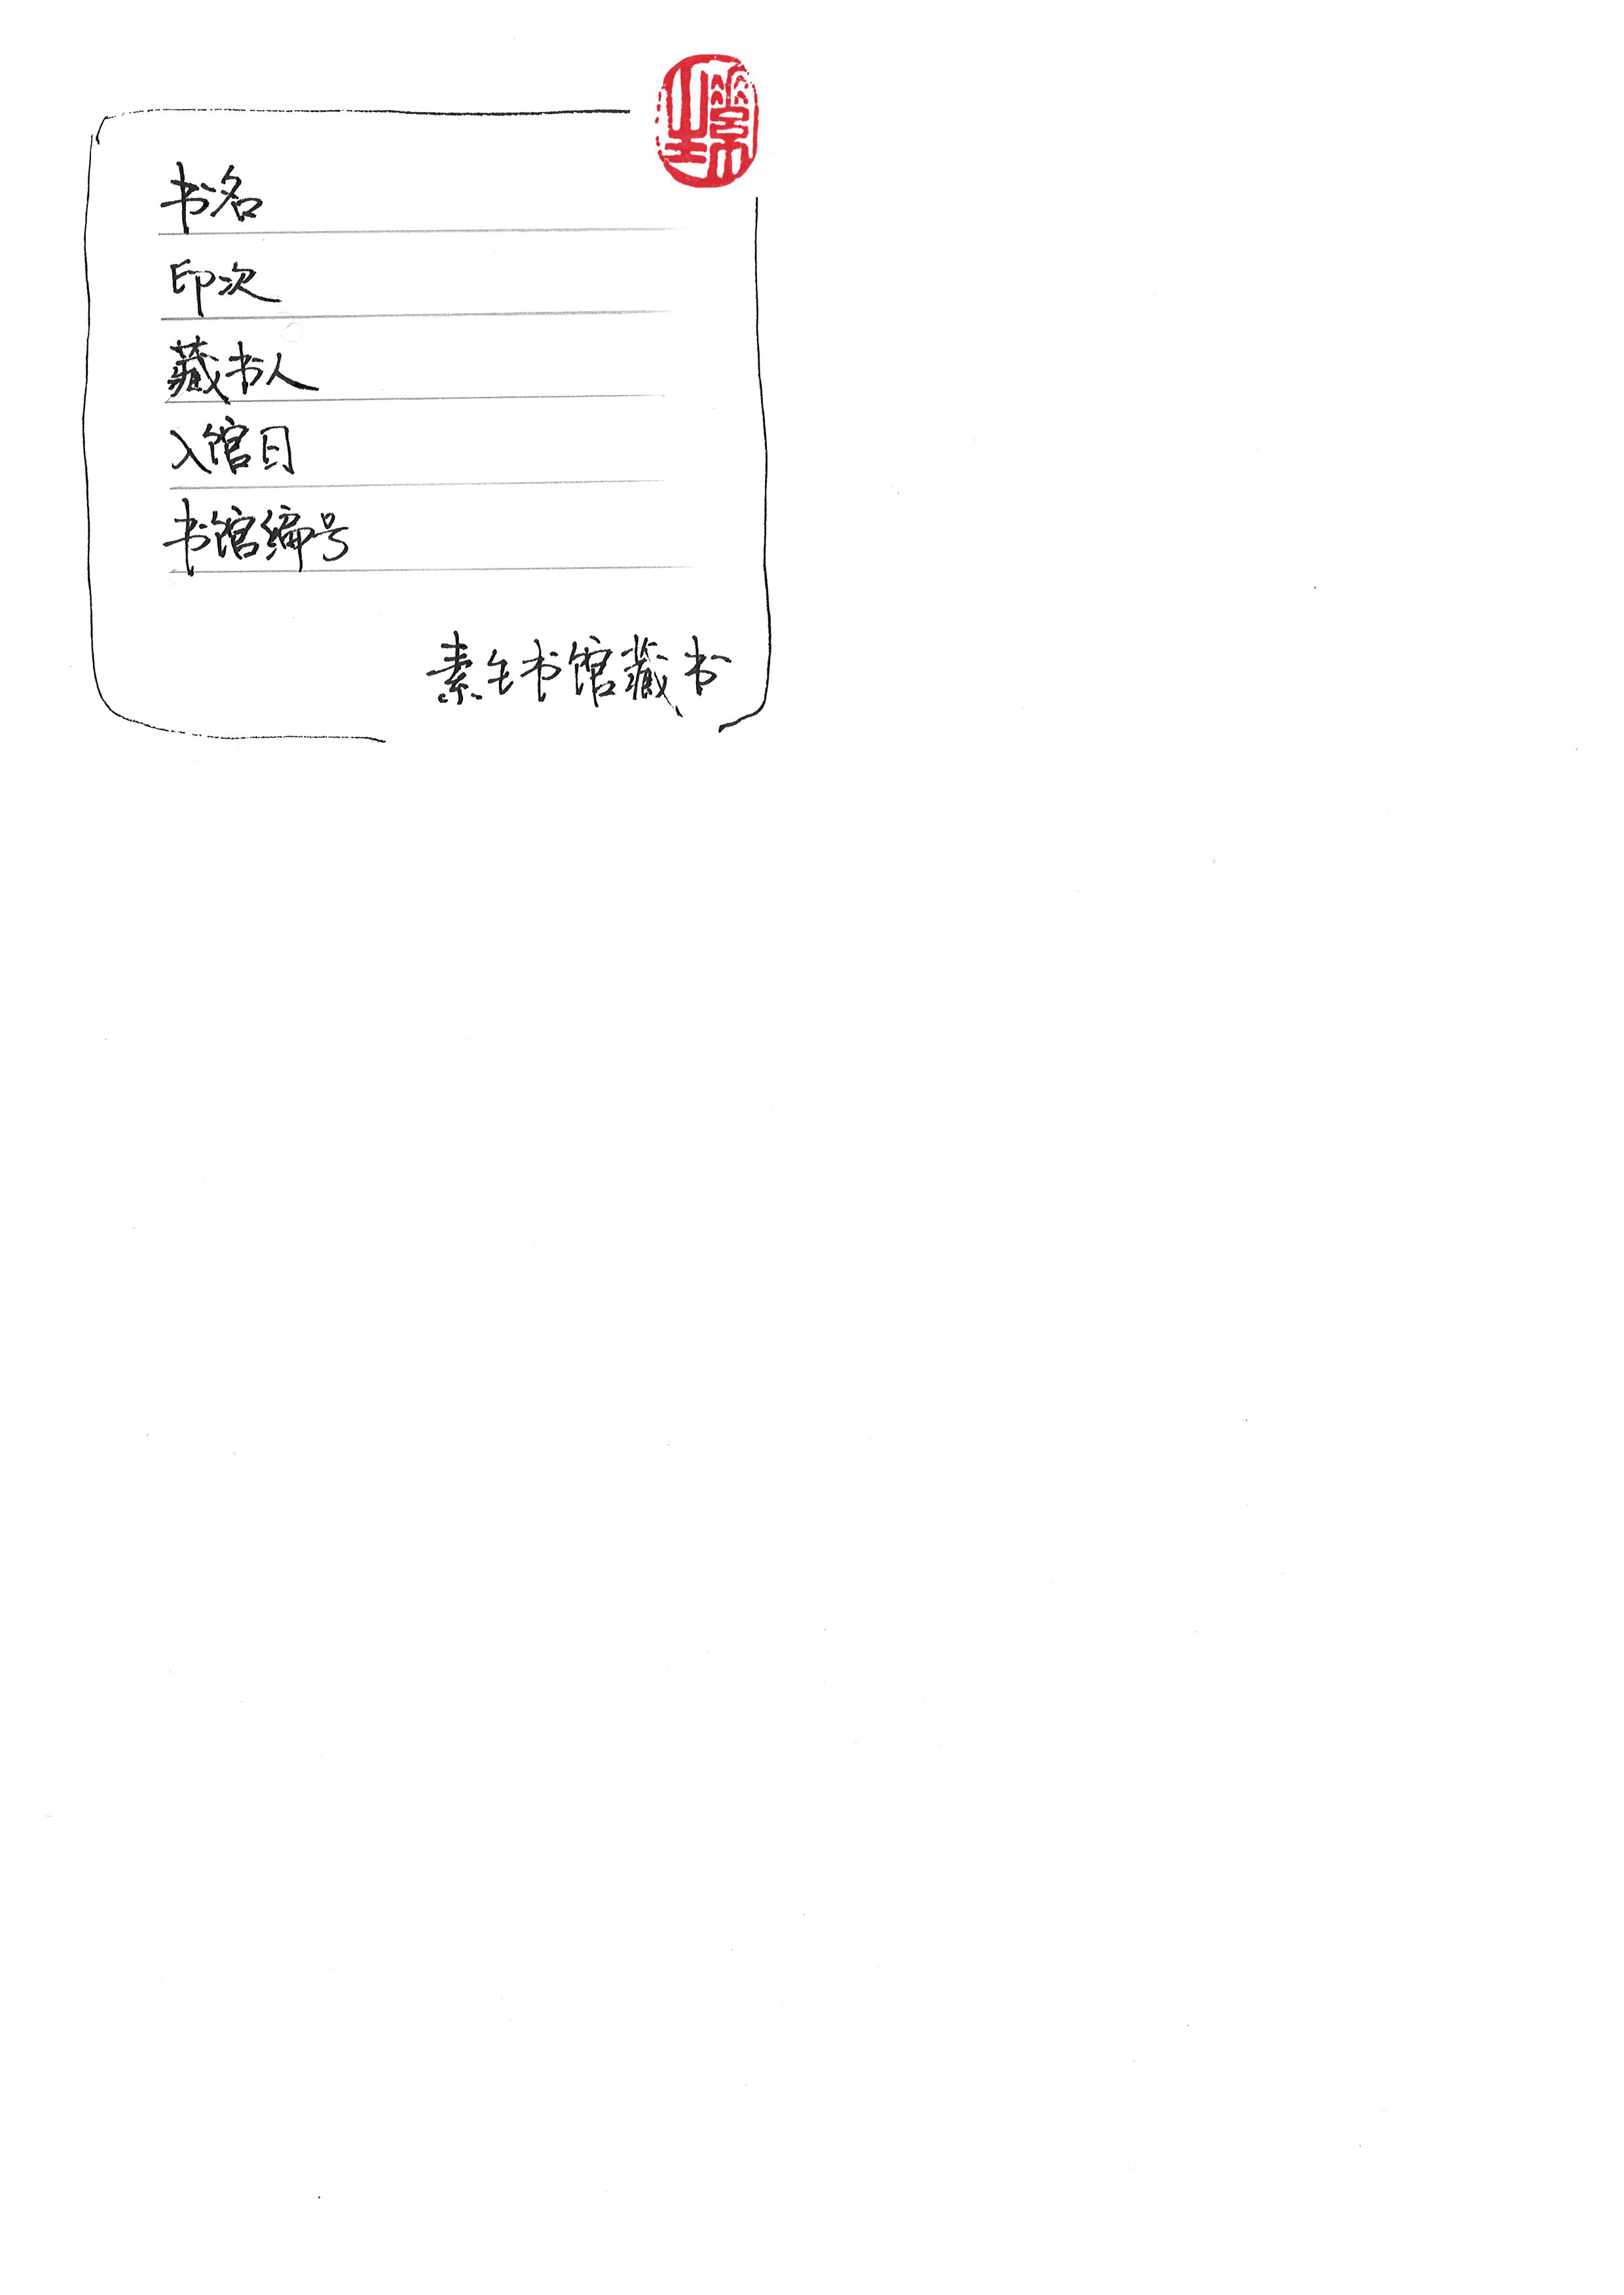 书名
印次
藏书人
入馆日
书馆编号
素生书馆藏书